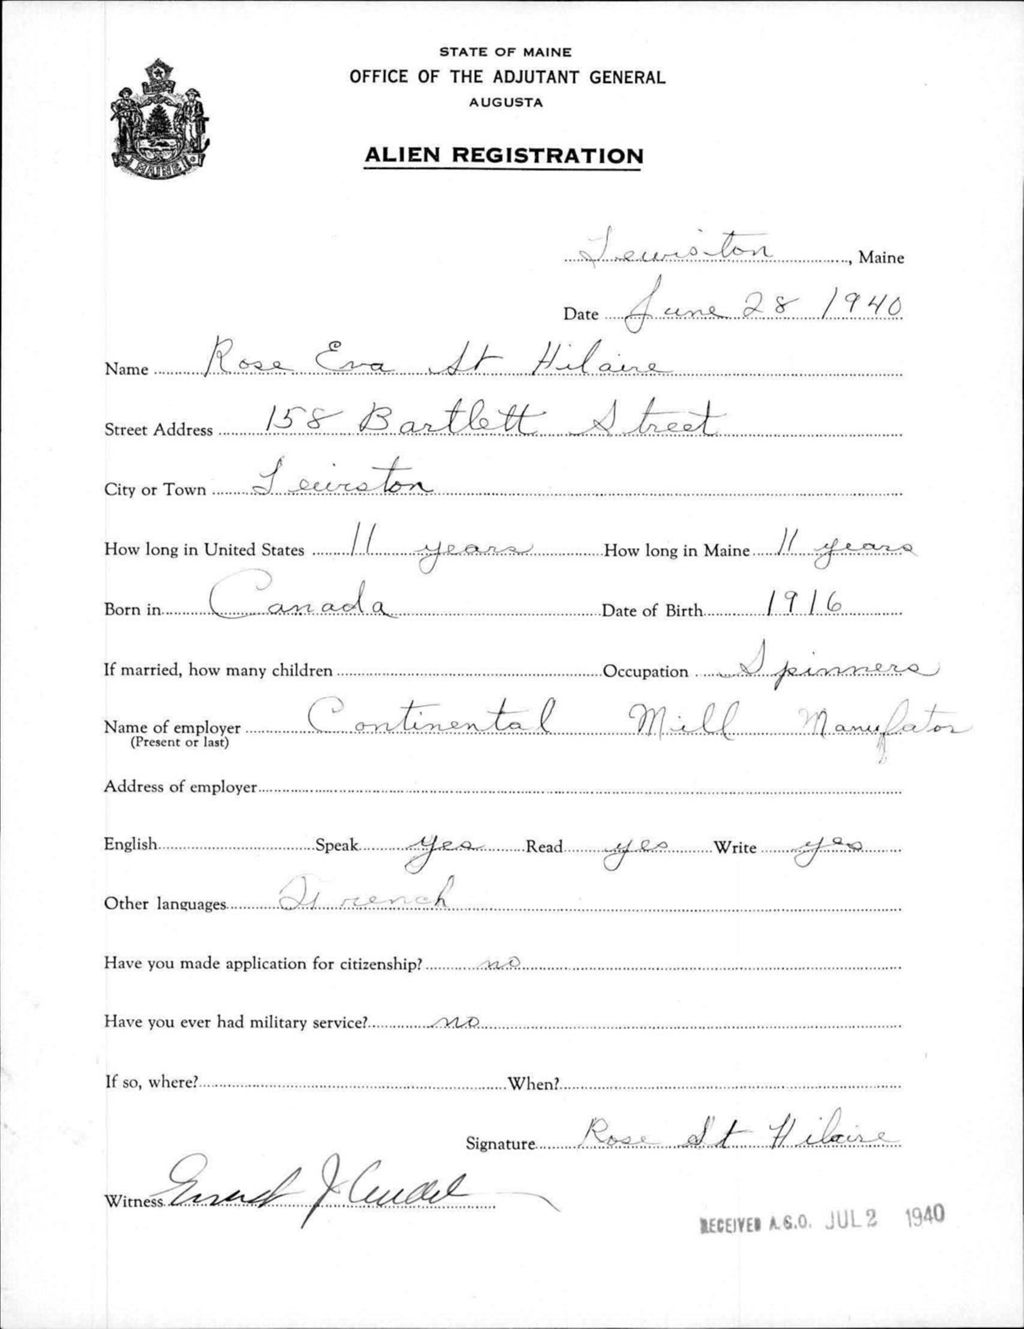 STATE OF MAINE
OFFICE OF THE ADJUTANT GENERAL
AUGUSTA
ALIEN REGISTRATION
MAINE
Lewiston, Maine
Date June 28 1940
Name Rose Eva St Hilaire
Street Address 158 Bartlett Street
City or Town Lewiston
How long in United States 11 years How long in Maine 11 years
Born in Canada Date of Birth 1916
If married, how many children Occupation Spinners
Name of employer Continental Mill Manufator
(Present or last)
Address of employer
English Speak yes Read yes Write yes
Other languages French
Have you made application for citizenship? no
Have you ever had military service? no
If so, where? When?
Signature Rose St Hilaire
Witness
RECEIVED A.G.O. JUL 2 1940